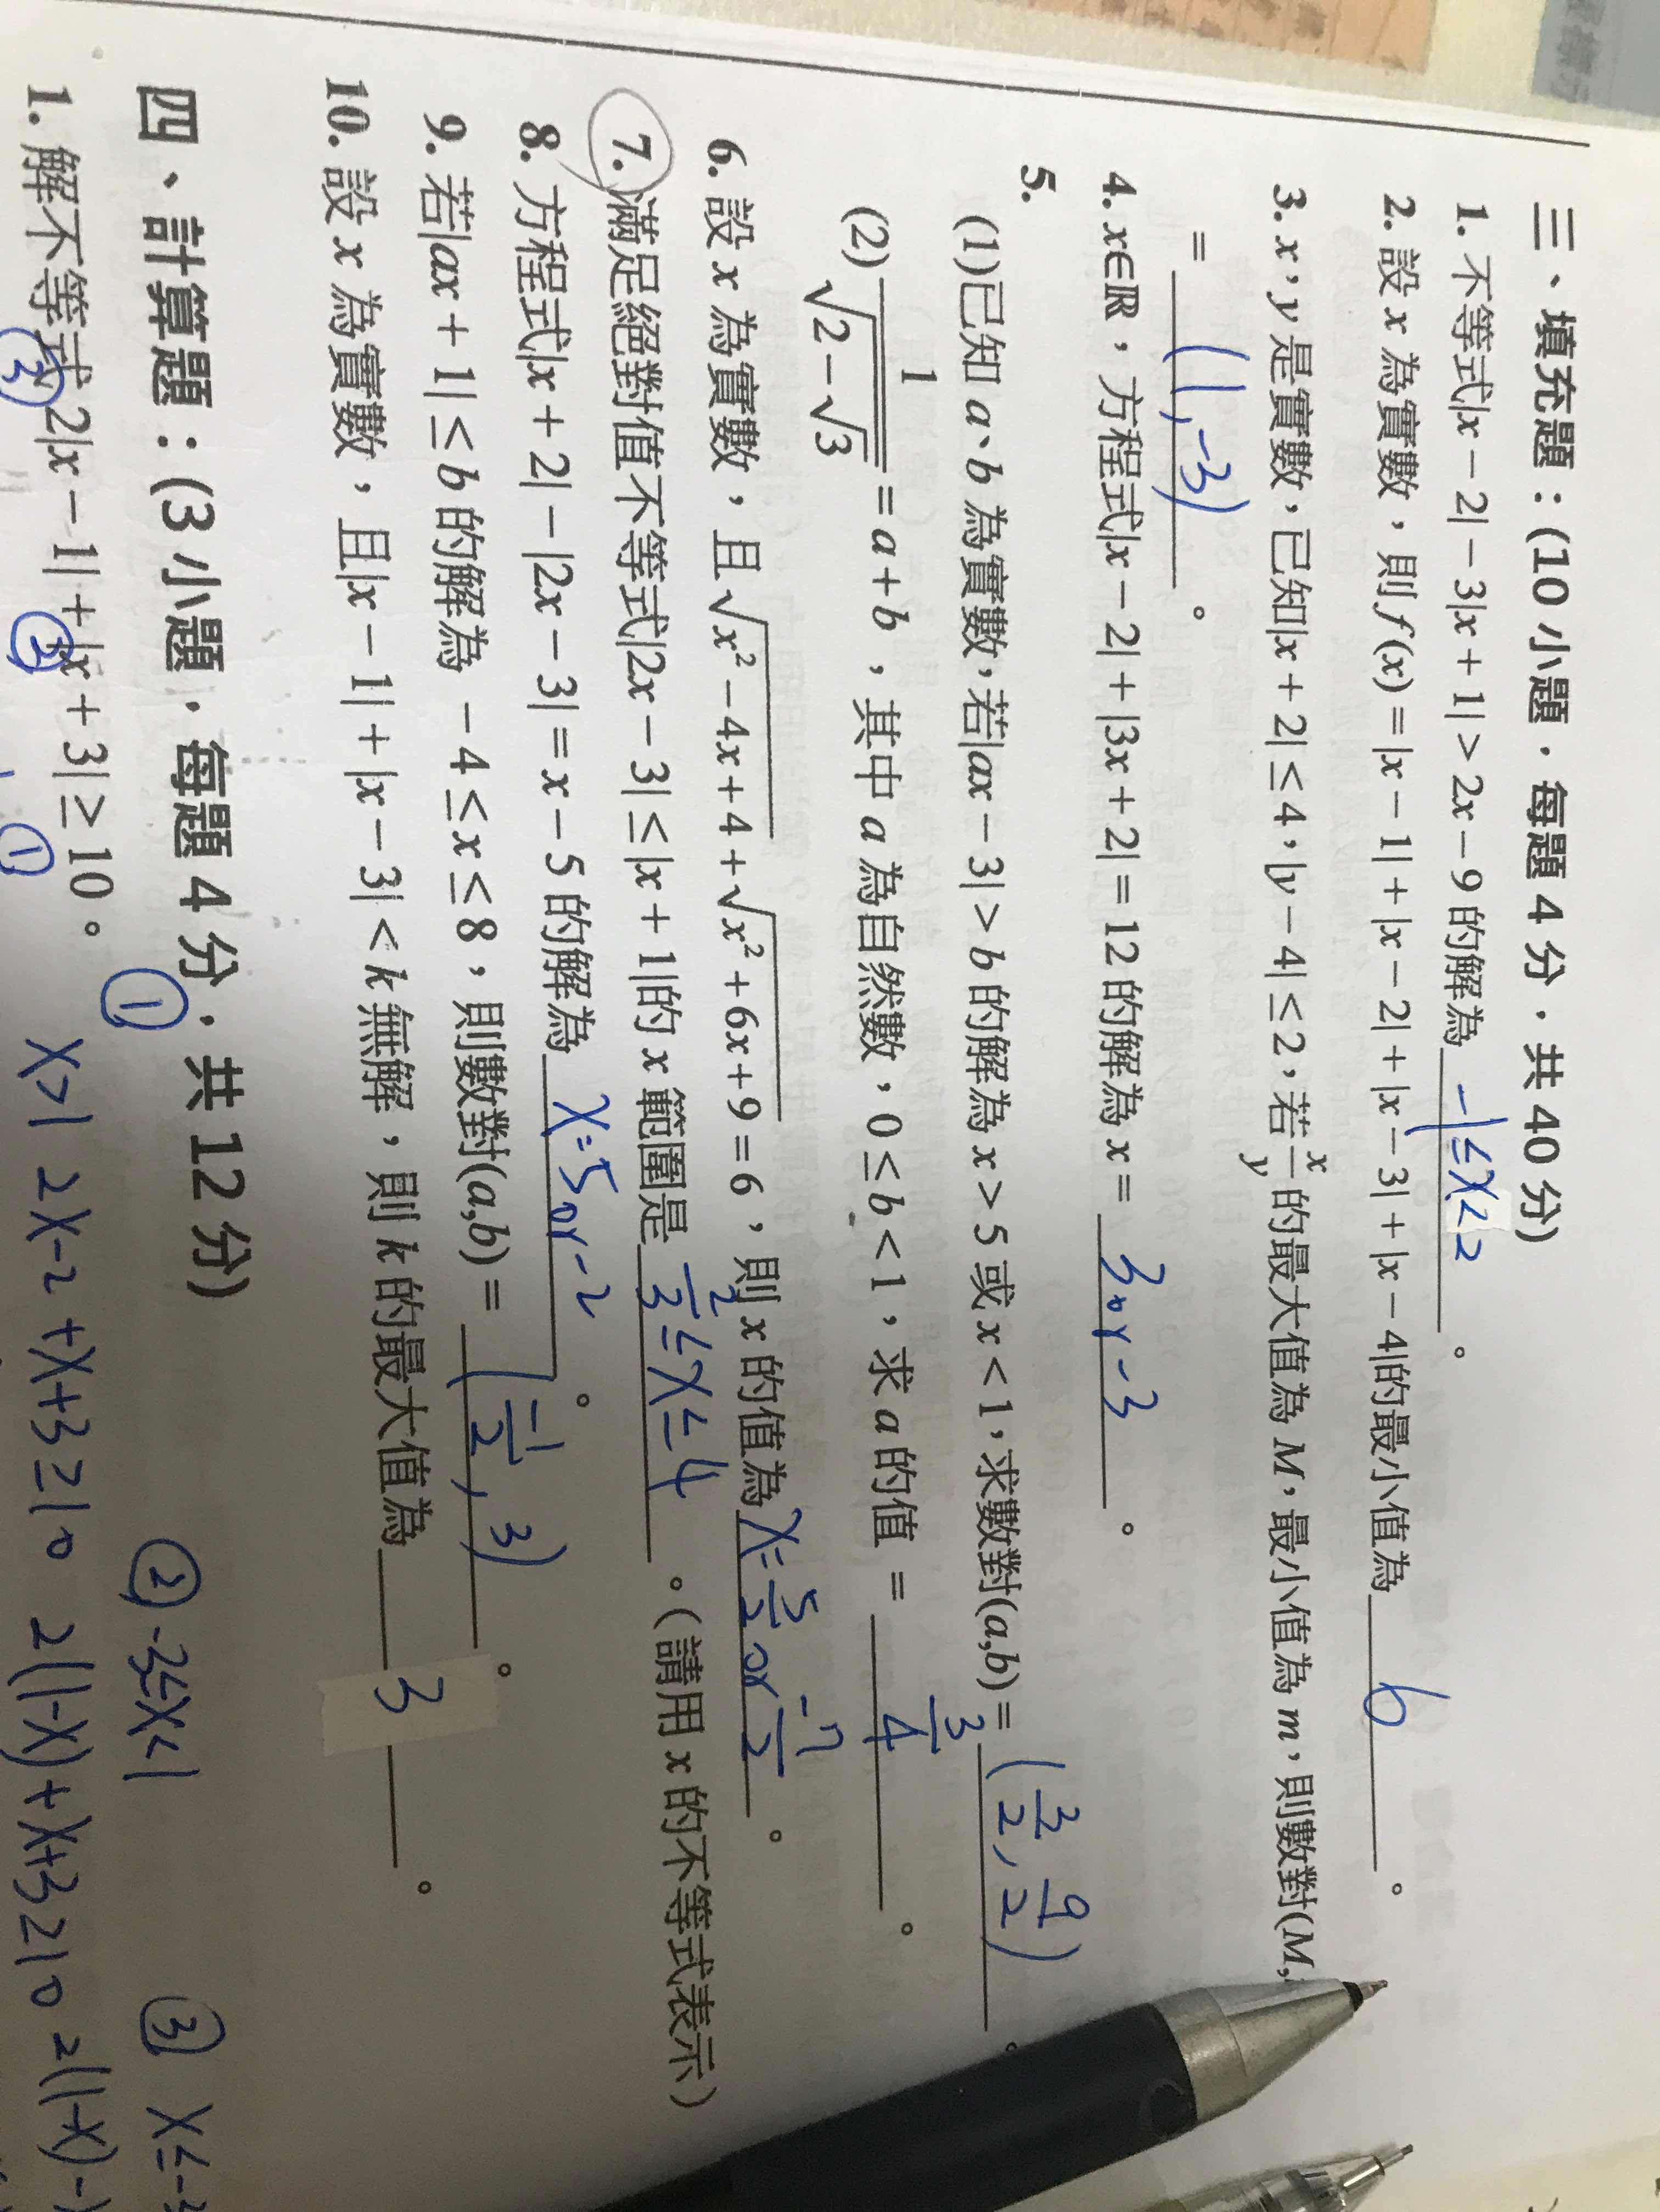 三、填充題：(10 小題，每題 4 分，共 40 分)
1. 不等式|x－2|－3|x＋1|＞2x－9 的解為 -1≤x<2 。
2. 設 x 為實數，則 f(x)＝|x－1|＋|x－2|＋|x－3|＋|x－4|的最小值為 6 。
3. x，y 是實數，已知|x＋2|≤4，|y－4|≤2，若 x/y 的最大值為 M，最小值為 m，則數對(M,
＝ (1,-3) 。
4. x∈ℝ，方程式|x－2|＋|3x＋2|＝12 的解為 x＝ 3 or -3 。
5.
(1)已知 a、b 為實數，若|ax－3|＞b 的解為 x＞5 或 x＜1，求數對(a,b)＝ (3/2, 9/2) 。
(2) 1/√(2－√3) ＝a＋b，其中 a 為自然數，0≤b＜1，求 a 的值＝ 3/4 。
6. 設 x 為實數，且√(x²－4x＋4)＋√(x²＋6x＋9)＝6，則 x 的值為 x=5/2 or -7/2 。
7. 滿足絕對值不等式|2x－3|≤|x＋1|的 x 範圍是 2/3≤x≤4 。（請用 x 的不等式表示）
8. 方程式|x＋2|－|2x－3|＝x－5 的解為 x=5 or -2 。
9. 若|ax＋1|≤b 的解為 －4≤x≤8，則數對(a,b)＝ (-1/2, 3) 。
10. 設 x 為實數，且|x－1|＋|x－3|＜k 無解，則 k 的最大值為 3 。
四、計算題：(3 小題，每題 4 分，共 12 分)
1. 解不等式 2|x－1|＋|x＋3|≥10。
③ ② ①
① x>1 2x-2+x+3≥10
② -3≤x<1 2(1-x)+x+3≥10
③ x≤-3 2(1-x)-